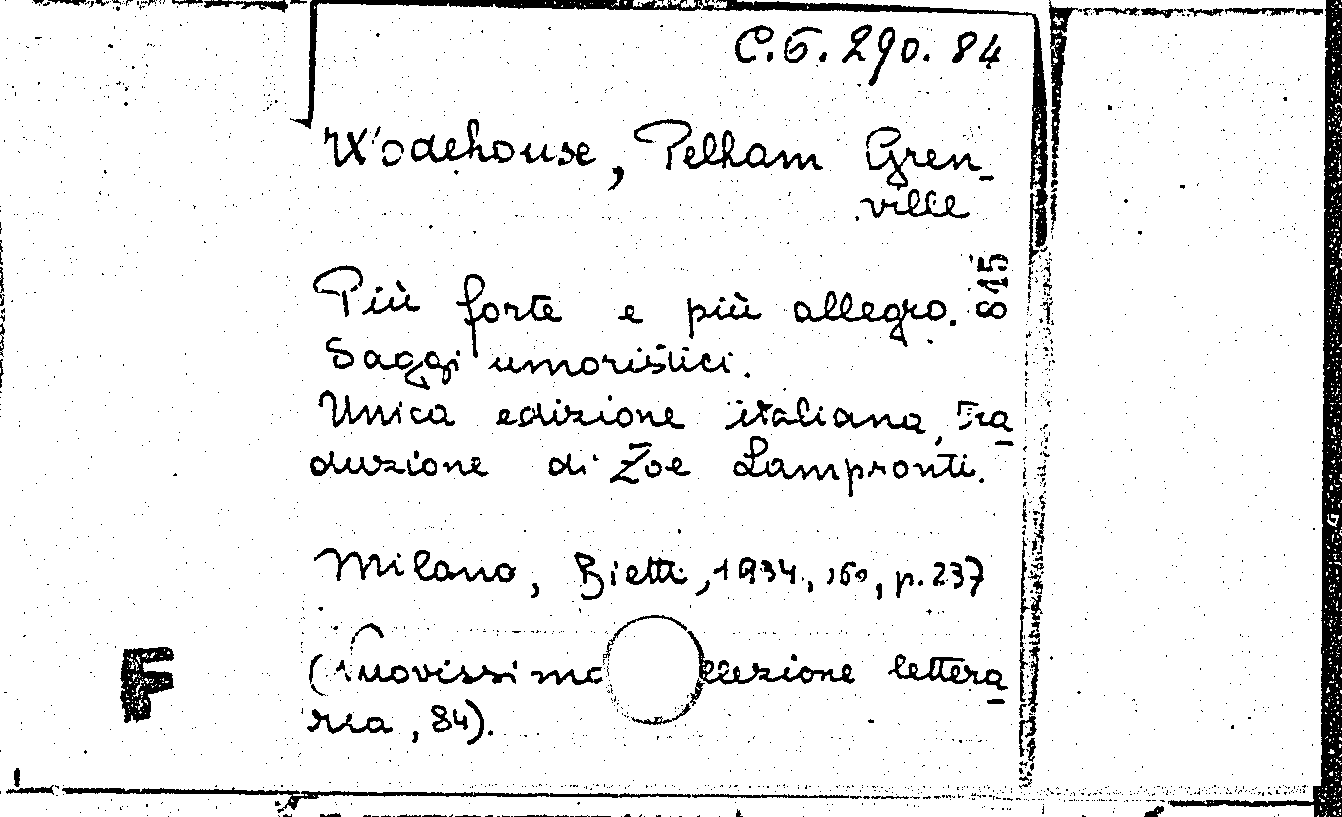 C.G. 290. 84
Wodehouse, Pelham Gren_
ville
845
Più forte e più allegro.
Saggi umoristici.
Unica edizione italiana, Tra_
duzione di Zoe Lampronti.
Milano, Bietti, 1934, 16°, p. 237
(Nuovissima llezione lettera_
ria, 84).
F